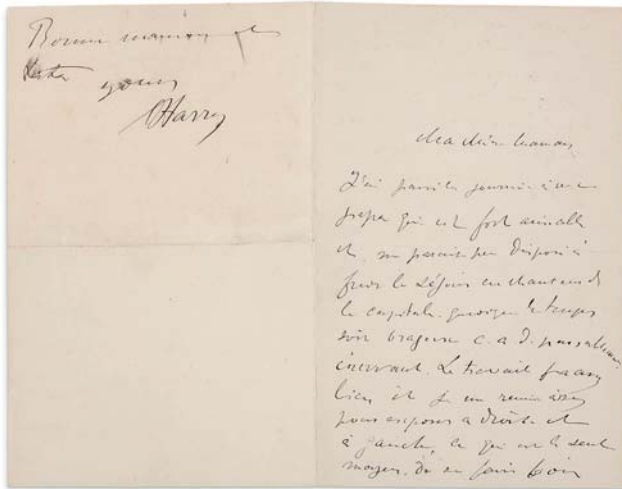 Bonne maman et
yours
Harry
Ma chère Maman
J'ai passé la journée avec
papa qui est fort aimable
et me paraît peu disposé à
fuir le séjour enchanteur de
la capitale quoique le temps
soit orageux c. a d. passablement
énervant. Le travail va assez
bien et je me remue assez
pour exposer à droite et
à gauche, ce qui est le seul
moyen de se faire voir